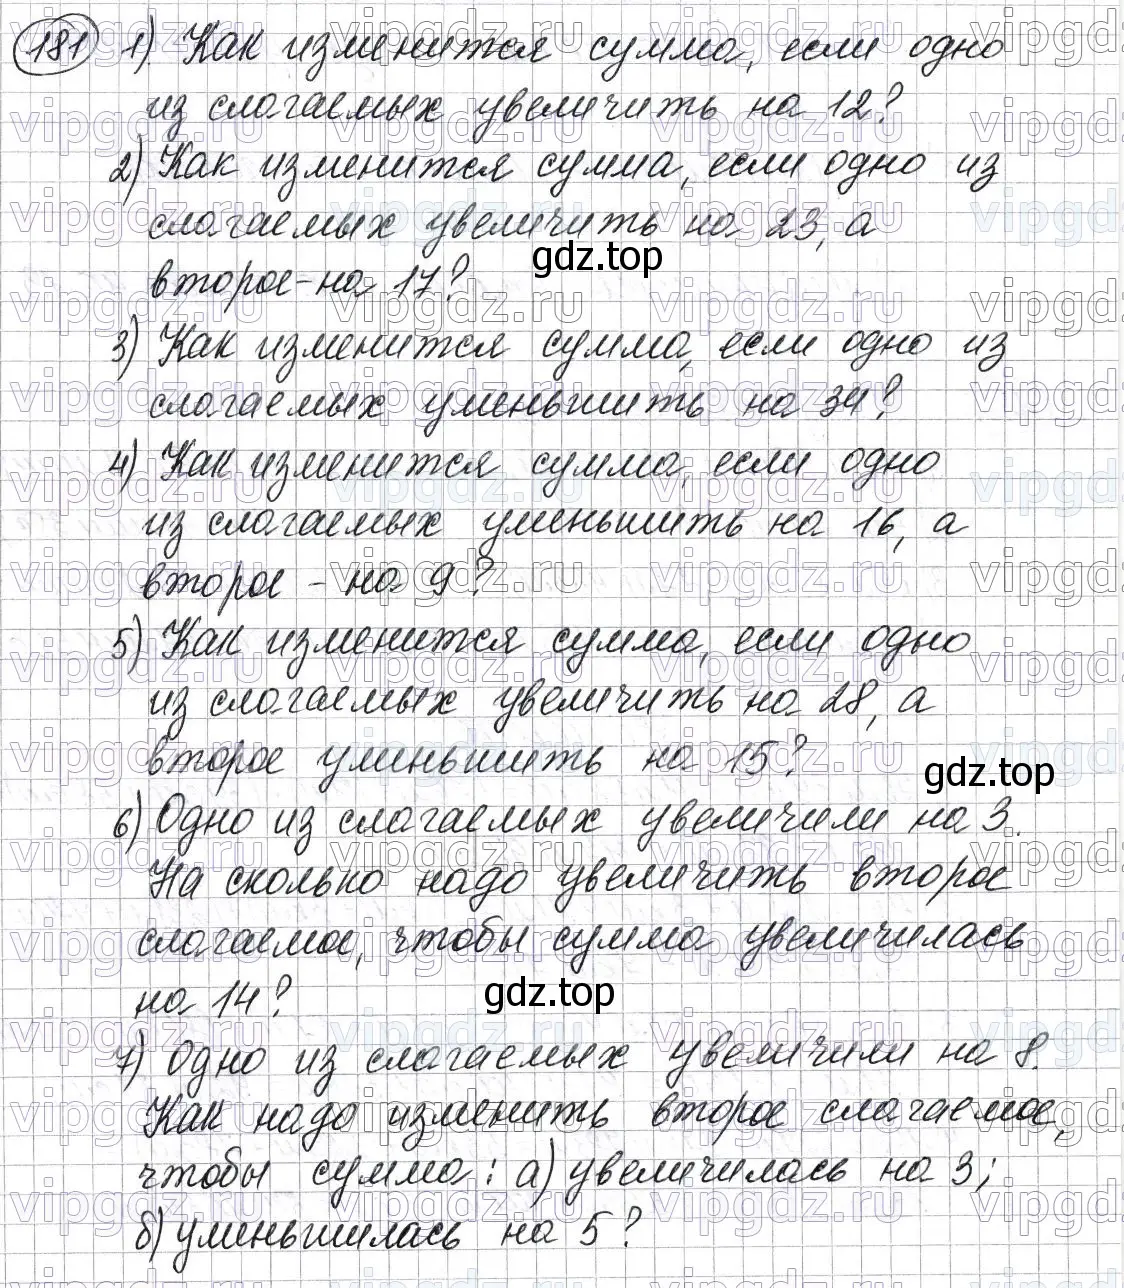 181 1) Как изменится сумма, если одно
из слагаемых увеличить на 12?
2) Как изменится сумма, если одно из
слагаемых увеличить на 23, а
второе - на 17?
gdz.top
3) Как изменится сумма, если одно из
слагаемых уменьшить на 34?
4) Как изменится сумма, если одно
из слагаемых уменьшить на 16, а
второе - на 9?
5) Как изменится сумма, если одно
из слагаемых увеличить на 28, а
второе уменьшить на 15?
gdz.top
6) Одно из слагаемых увеличили на 3.
На сколько надо увеличить второе
слагаемое, чтобы сумма увеличилась
на 14?
gdz.top
7) Одно из слагаемых увеличили на 8.
Как надо изменить второе слагаемое,
чтобы сумма: а) увеличилась на 3;
б) уменьшилась на 5?